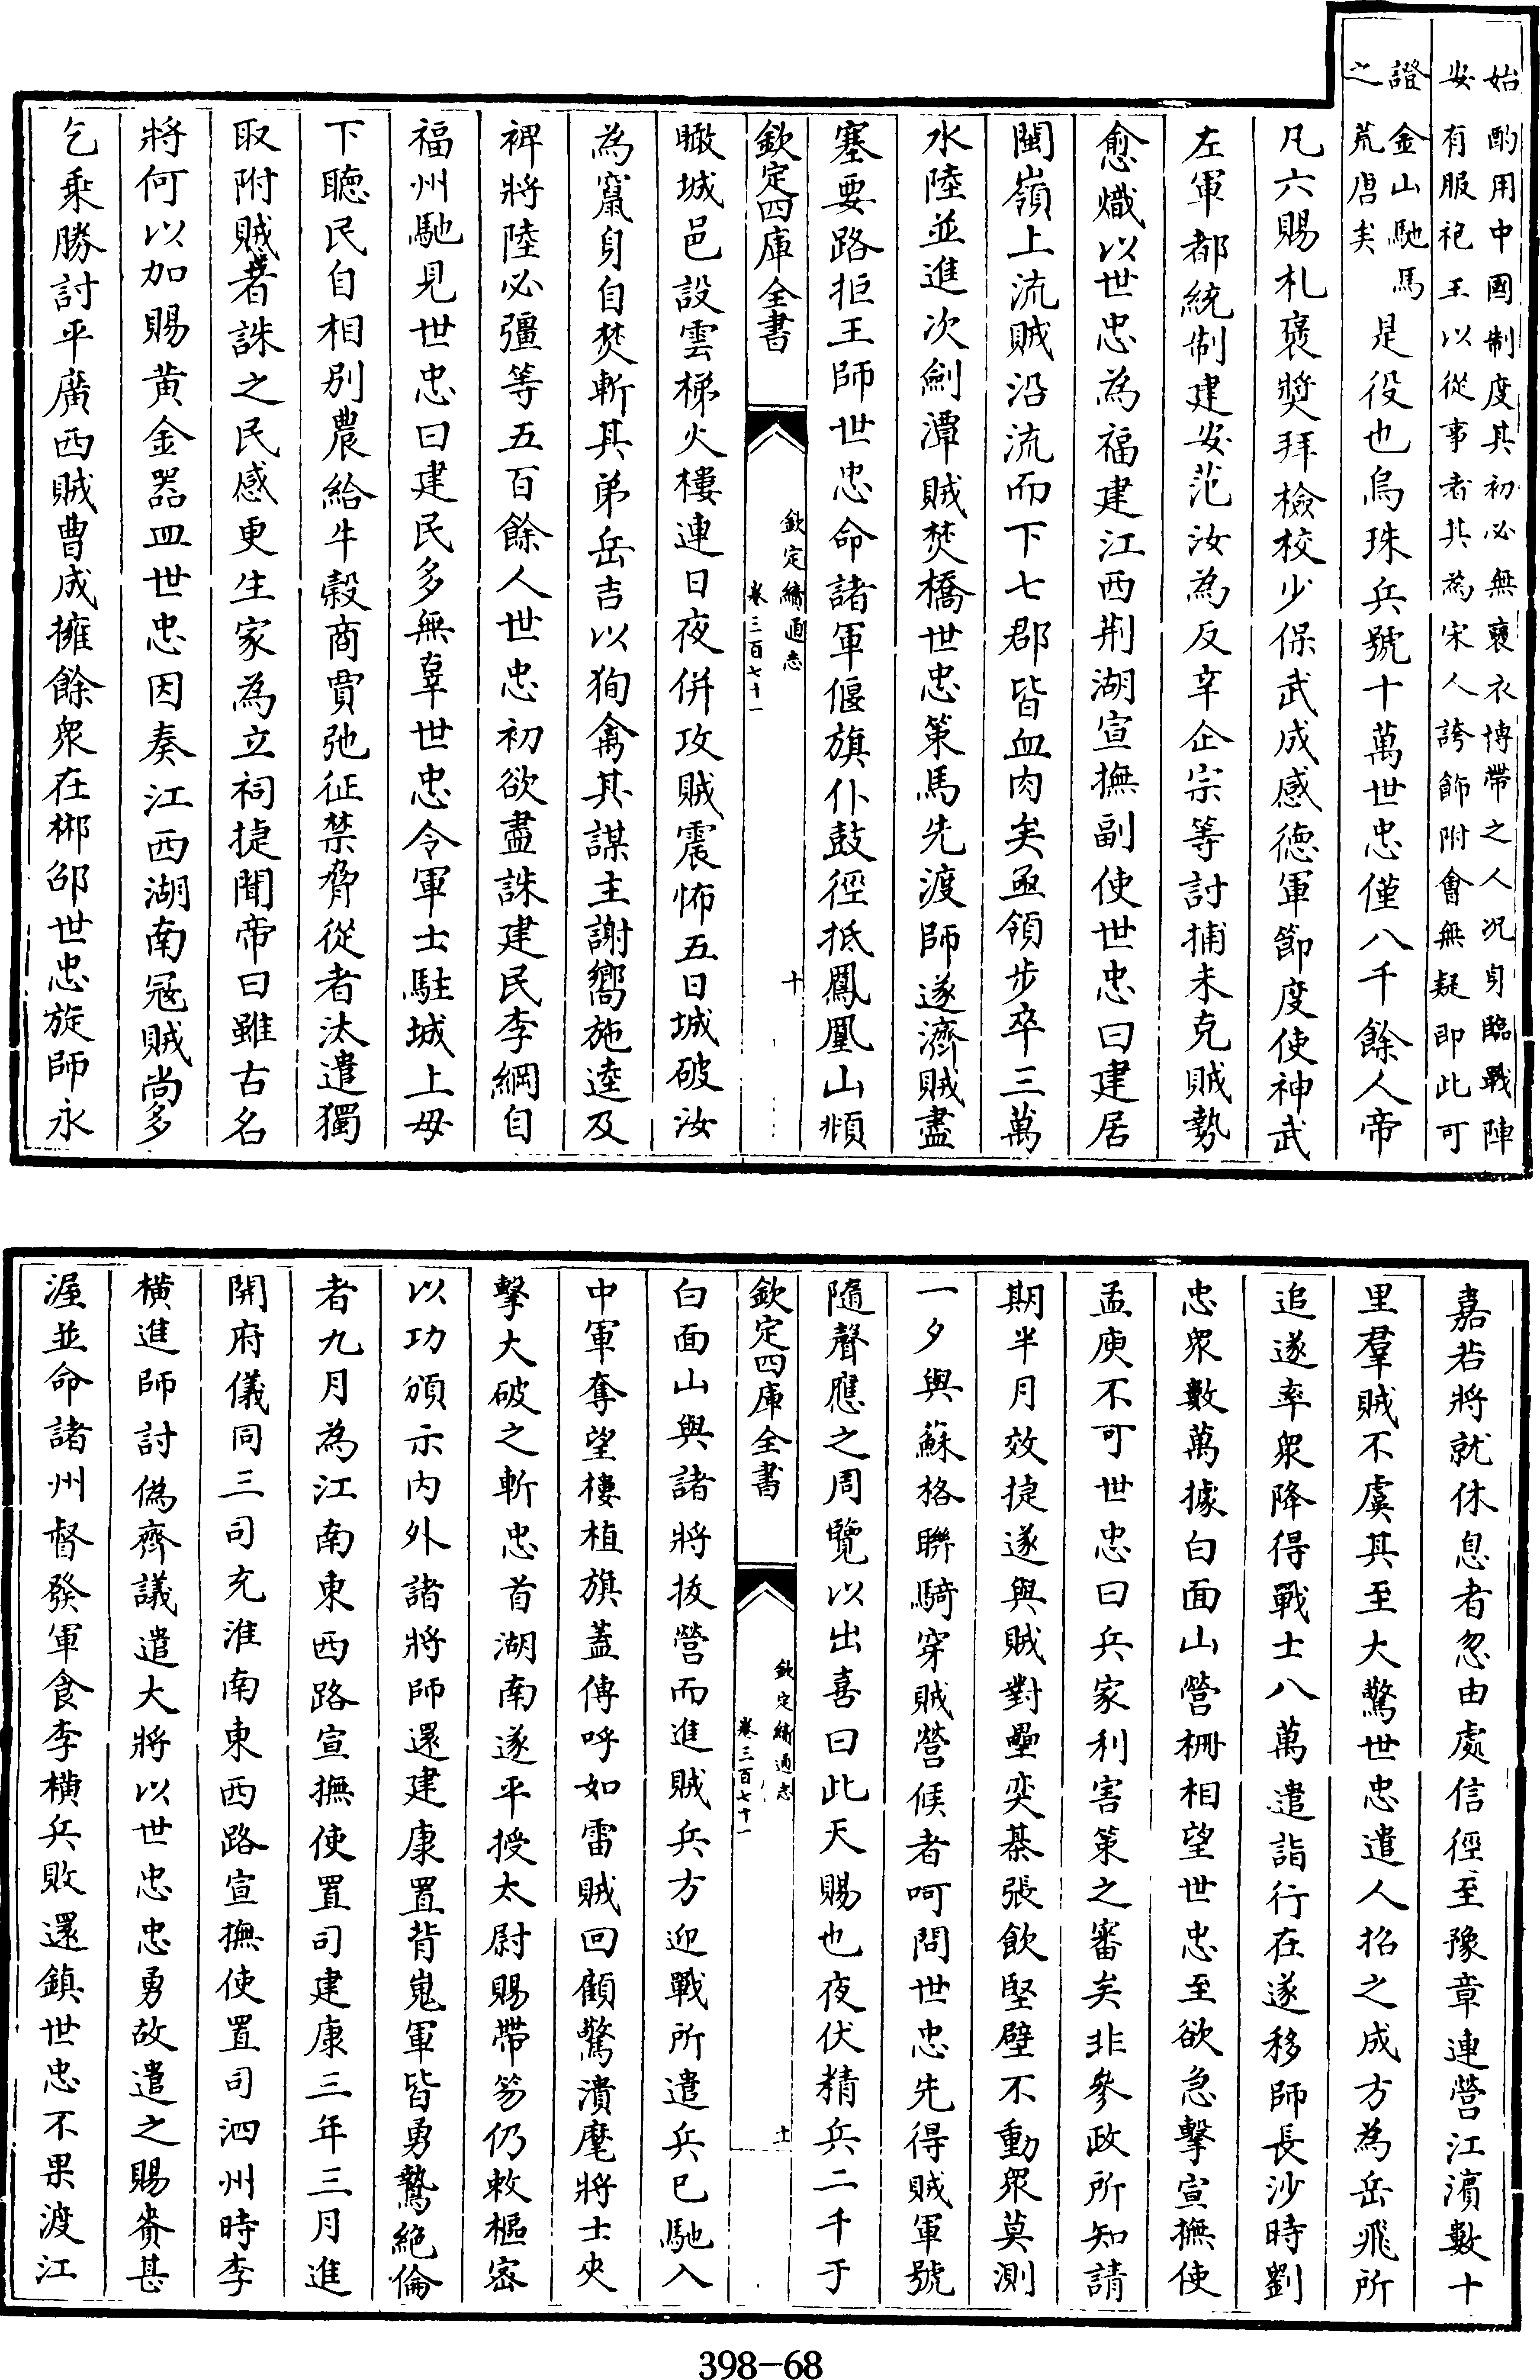 始酌用中國制度其初必無裒衣博帶之人況身臨戰陣
安有服袍玉以從事者其為宋人誇飾附會無疑即此可
證金山馳馬
之荒唐矣
是役也烏珠兵號十萬世忠僅八千餘人帝
凡六賜札褒奬拜檢校少保武成感德軍節度使神武
左軍都統制建安范汝為反辛企宗等討捕未克賊勢
愈熾以世忠為福建江西荆湖宣撫副使世忠曰建居
閩嶺上流賊沿流而下七郡皆血肉矣亟領步卒三萬
水陸並進次劍潭賊焚橋世忠策馬先渡師遂濟賊盡
塞要路拒王師世忠命諸軍偃旗仆鼓徑抵鳳凰山頫
欽定四庫全書
欽定續通志
卷三百七十一
十
瞰城邑設雲梯火樓連日夜併攻賊震怖五日城破汝
為竄身自焚斬其弟岳吉以狥禽其謀主謝嚮施逵及
裨將陸必彊等五百餘人世忠初欲盡誅建民李綱自
福州馳見世忠曰建民多無辜世忠令軍士駐城上毋
下聽民自相别農給牛榖商賈弛征禁脅從者汰遣獨
取附賊者誅之民感更生家為立祠捷聞帝曰雖古名
將何以加賜黄金器皿世忠因奏江西湖南宼賊尚多
乞乘勝討平廣西賊曹成擁餘衆在郴邵世忠旋師永
嘉若將就休息者忽由處信徑至豫章連營江濵數十
里羣賊不虞其至大驚世忠遣人招之成方為岳飛所
追遂率衆降得戰士八萬遣詣行在遂移師長沙時劉
忠衆數萬據白面山營栅相望世忠至欲急擊宣撫使
孟庾不可世忠曰兵家利害策之審矣非參政所知請
期半月效捷遂與賊對壘奕棊張飲堅壁不動衆莫測
一夕與蘇格聯騎穿賊營候者呵問世忠先得賊軍號
隨聲應之周覽以出喜曰此天賜也夜伏精兵二千于
欽定四庫全書
欽定續通志
卷三百七十一
十一
白面山與諸將拔營而進賊兵方迎戰所遣兵已馳入
中軍奪望樓植旗蓋傳呼如雷賊回顧驚潰麾將士夾
擊大破之斬忠首湖南遂平授太尉賜帶笏仍敕樞密
以功頒示内外諸將師還建康置背嵬軍皆勇鷙絶倫
者九月為江南東西路宣撫使置司建康三年三月進
開府儀同三司充淮南東西路宣撫使置司泗州時李
横進師討偽齊議遣大將以世忠忠勇故遣之賜賚甚
渥並命諸州督發軍食李横兵敗還鎮世忠不果渡江
398-68